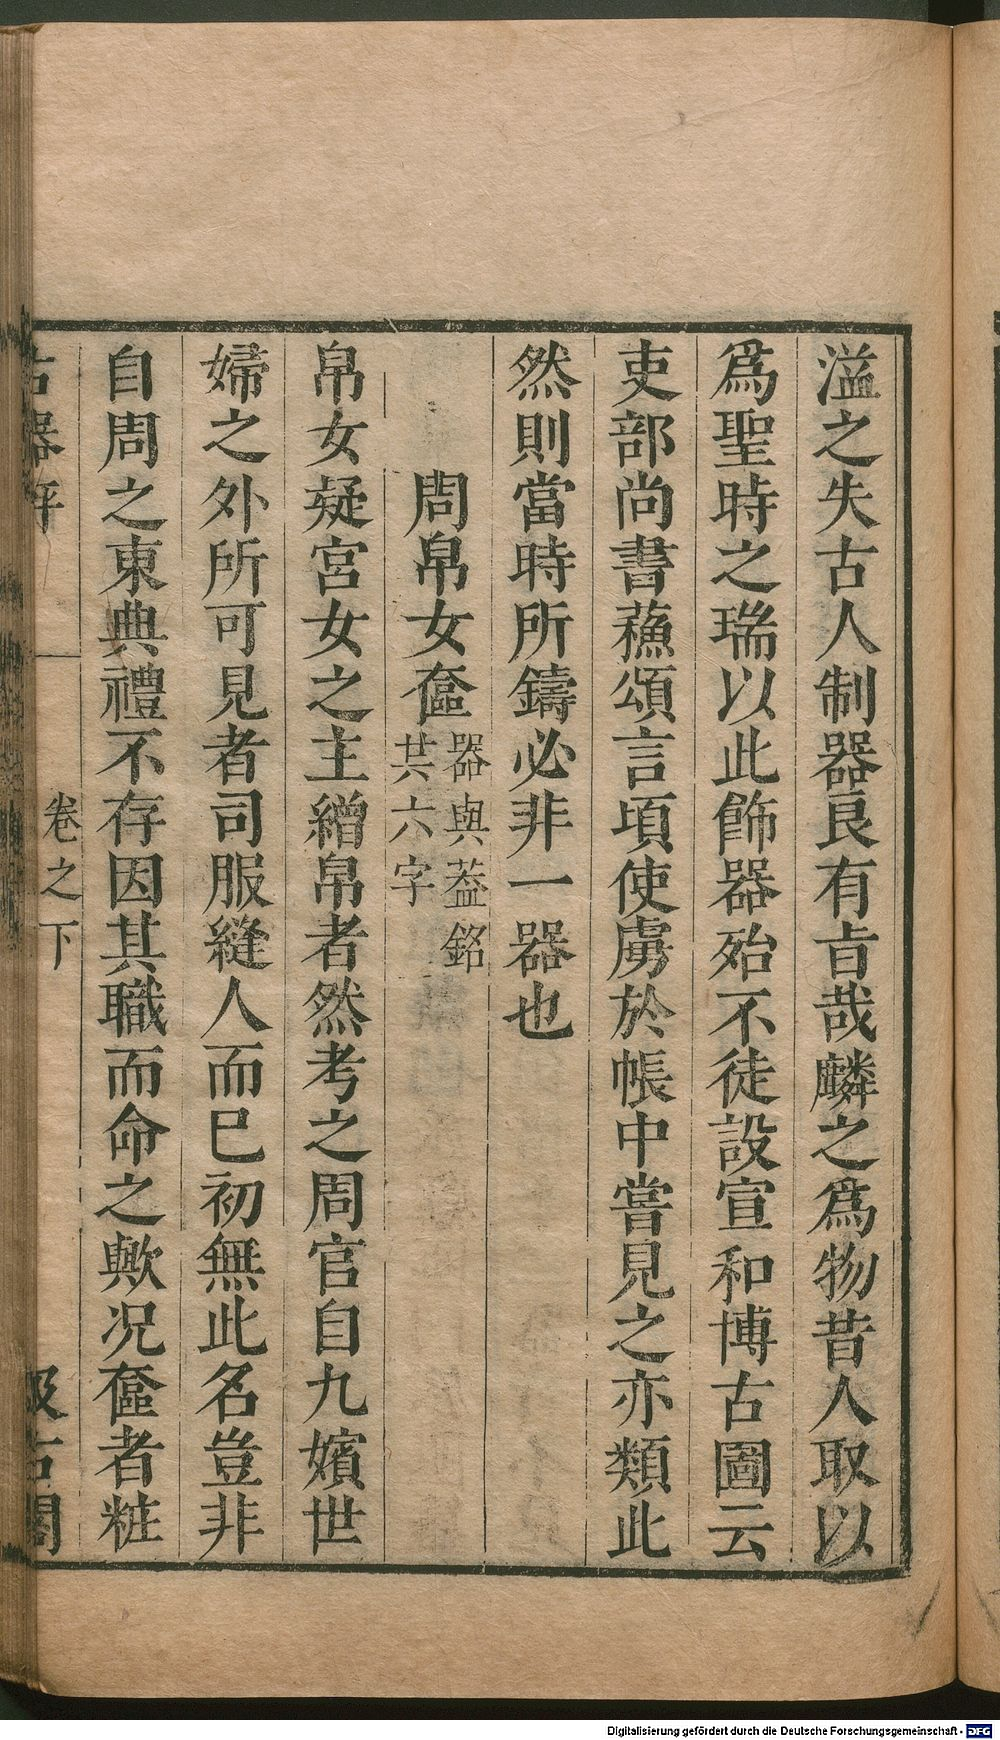 溢之失古人制器良有㫖哉麟之爲物昔人取以
爲聖時之瑞以此飾器殆不徒設宣和博古圖云
吏部尚書蘓頌言頃使虜於帳中嘗見之亦類此
然則當時所鑄必非一器也
周帛女奩
器與葢銘
共六字
帛女疑宮女之主繒帛者然考之周官自九嬪世
婦之外所可見者司服縫人而巳初無此名豈非
自周之東典禮不存因其職而命之歟况奩者粧
古器評
卷之下
汲古閣
Digitalisierung gefördert durch die Deutsche Forschungsgemeinschaft - DFG